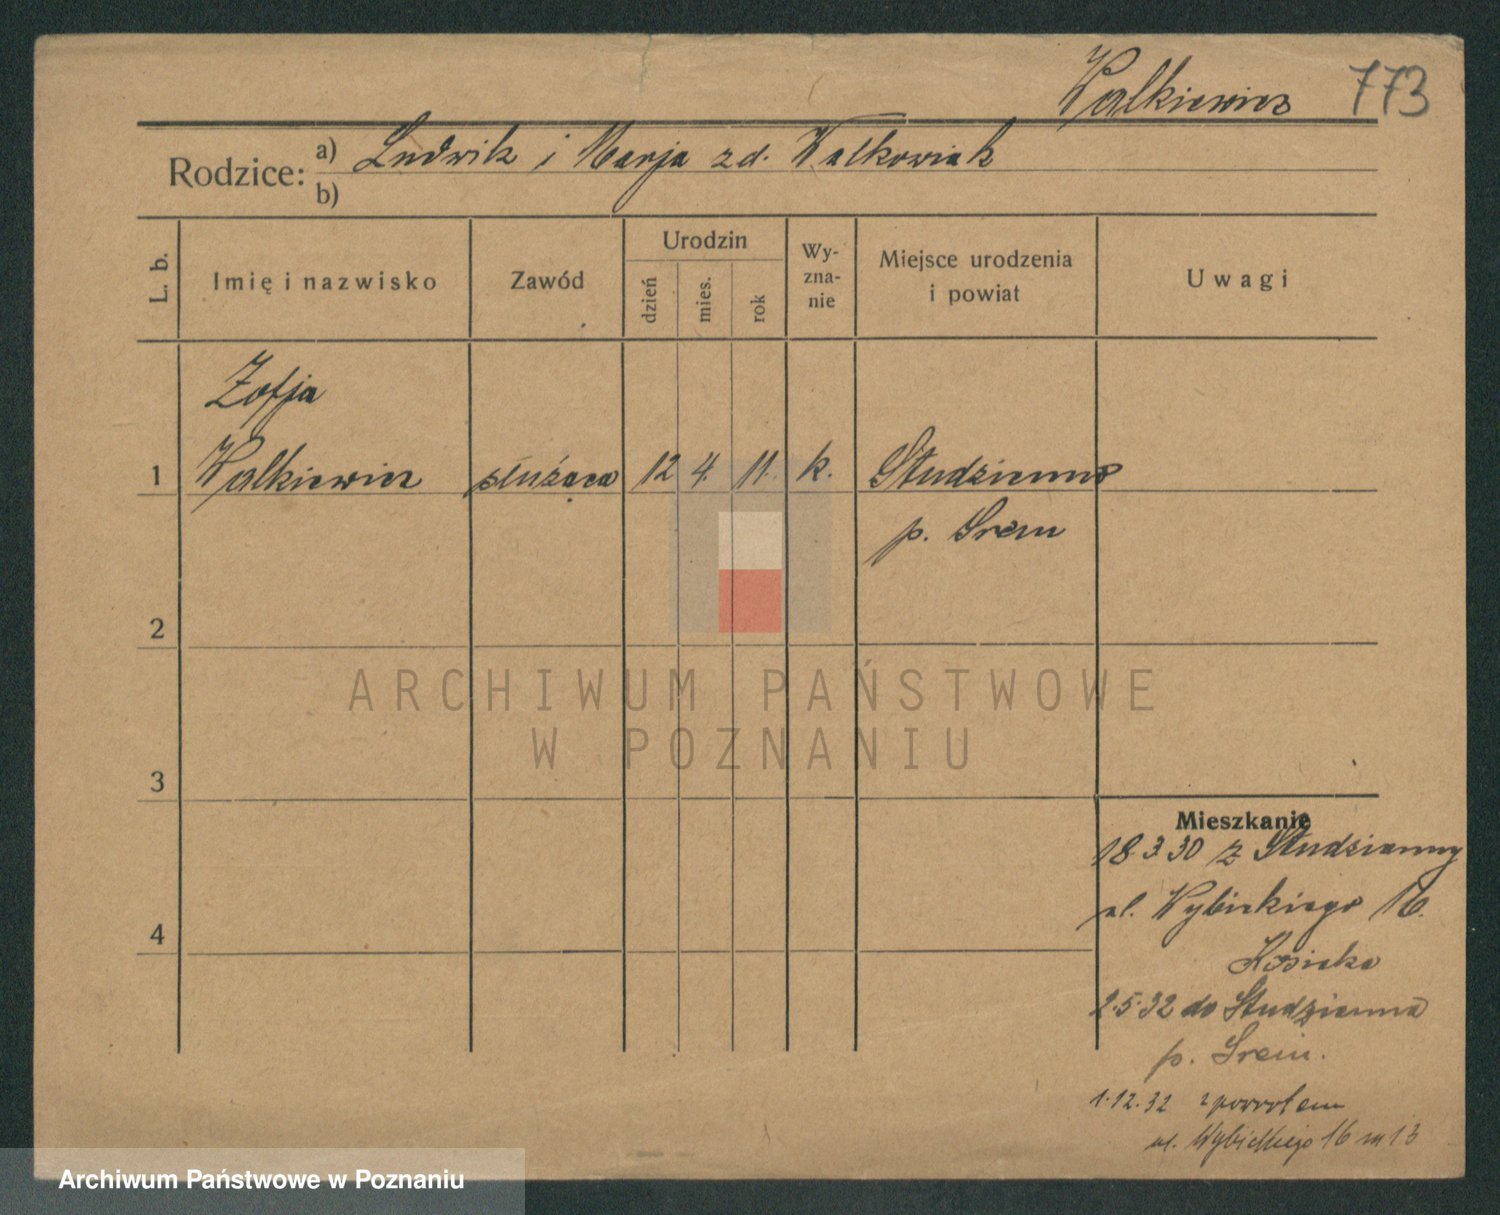 Walkiewicz 773
Rodzice: a) Ludwik i Marja zd. Walkowiak
b)
L. b.
Imię i nazwisko
Zawód
Urodzin
dzień
mies.
rok
Wy-
zna-
nie
Miejsce urodzenia
i powiat
Uwagi
Zofja
1 Walkiewicz służąca 12 4. 11. k. Studzienna
p. Śrem
2
ARCHIWUM PAŃSTWOWE
W POZNANIU
3
Mieszkanie
18.3.30 z Studzianny
ul. Wybickiego 16.
4
2.5.32 do Studzianna
p. Śrem.
1.12.32 zpowrotem
ul. Wybickiego 16 m 13
Archiwum Państwowe w Poznaniu